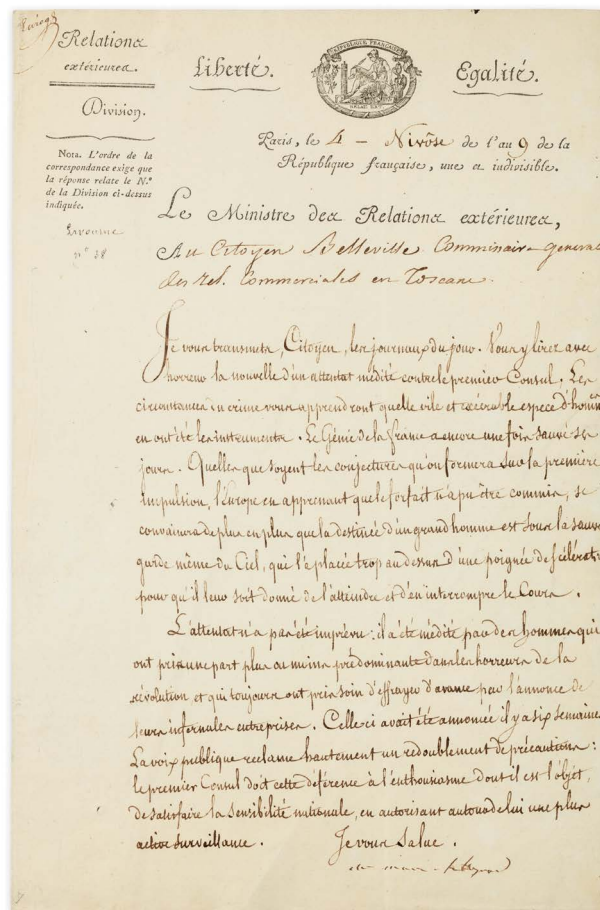 Relations
extérieures.
Division.
Nota. L'ordre de la
correspondance exige que
la réponse relate le N.º
de la Division ci-dessus
indiquée.
Livourne
n.º 38
Liberté.
RÉPUBLIQUE FRANÇAISE
Egalité.
Paris, le 4 - Nivôse de l'an 9 de la
République française, une et indivisible.
Le Ministre des Relations extérieures,
Au Citoyen Belleville Commissaire general
des rel. Commerciales en Toscane.
Je vous transmets, Citoyen, les journaux du jour. Vous y lirez avec
horreur la nouvelle d'un attentat médité contre le premier Consul. Les
circonstances du crime vous apprendront quelle vile et exécrable espèce d'hommes
en ont été les instruments. Le Génie de la france a encore une fois sauvé ses
jours. Quelles que soyent les conjectures qu'on formera sur la première
impulsion, l'Europe en apprenant que le forfait n'a pu être commis, se
convaincra de plus en plus que la destinée d'un grand homme est sous la sauve
garde même du Ciel, qui l'a placée trop au dessus d'une poignée de scélérats
pour qu'il leur soit donné de l'atteindre et d'en interrompre le Cours.
L'attentat n'a pas été imprévu : il a été médité par des hommes qui
ont pris une part plus ou moins prédominante dans les horreurs de la
révolution et qui toujours ont pris soin d'effrayer d'avance par l'annonce de
leurs infernales entreprises. Celle ci avait été annoncée il y a six semaines.
La voix publique reclame hautement un redoublement de précautions :
le premier Consul doit cette déférence à l'enthousiasme dont il est l'objet,
de satisfaire la sensibilité nationale, en autorisant autour de lui une plus
active surveillance.
Je vous Salue.